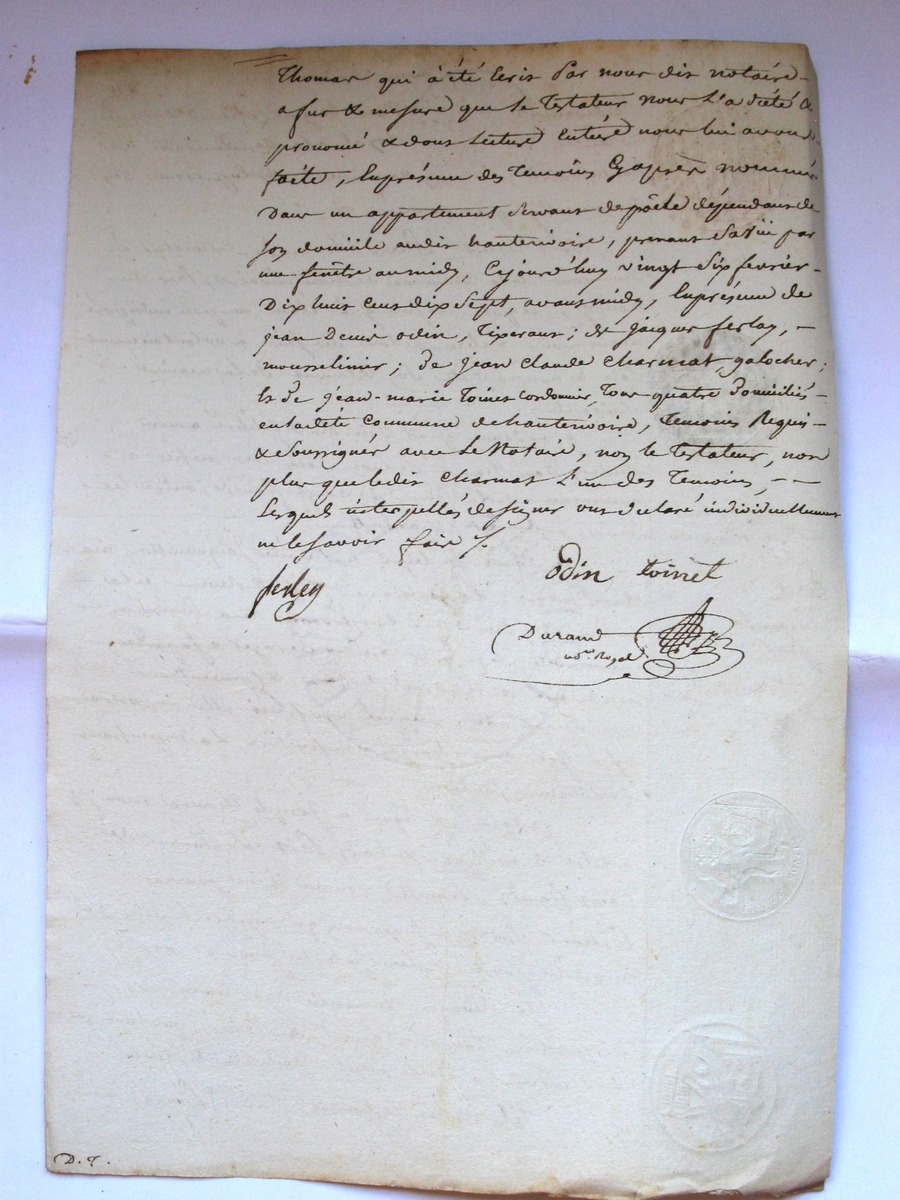 Thomas qui à été Ecrit Par nous dit notaire-
a fur & mesure que le Testateur nous L'a dicté &
prononcé & dont Lecture Entière nous lui avons
faite, En présence des Temoins Cy après nommés.
Dans un appartement Servant de poële dépendant de
Son domicile audit hauterivoire, prenant Sa vüe par
une fenêtre au midy, Cejourd'huy vingt Six fevrier-
Dix huit Cent dix Sept, avant midy, En présence de
jean Denis odin, Tixerant; de jacques ferley, -
mousselinier; De jean Claude Charmat, galocher;
Et De jean-marie Toinet Cordonnier, Tous quatre Domiciliés-
en ladite Commune de hauterivoire, Temoins Requis-
& Soussignés avec Le Notaire, non le Testateur, non
plus que ledit Charmat L'un des Temoins, - -
Lesquels interpellés de signer ont déclaré individuellement
ne le Savoir faire /.
ferley
odin toinet
Durand
not.re Royal
D. T.